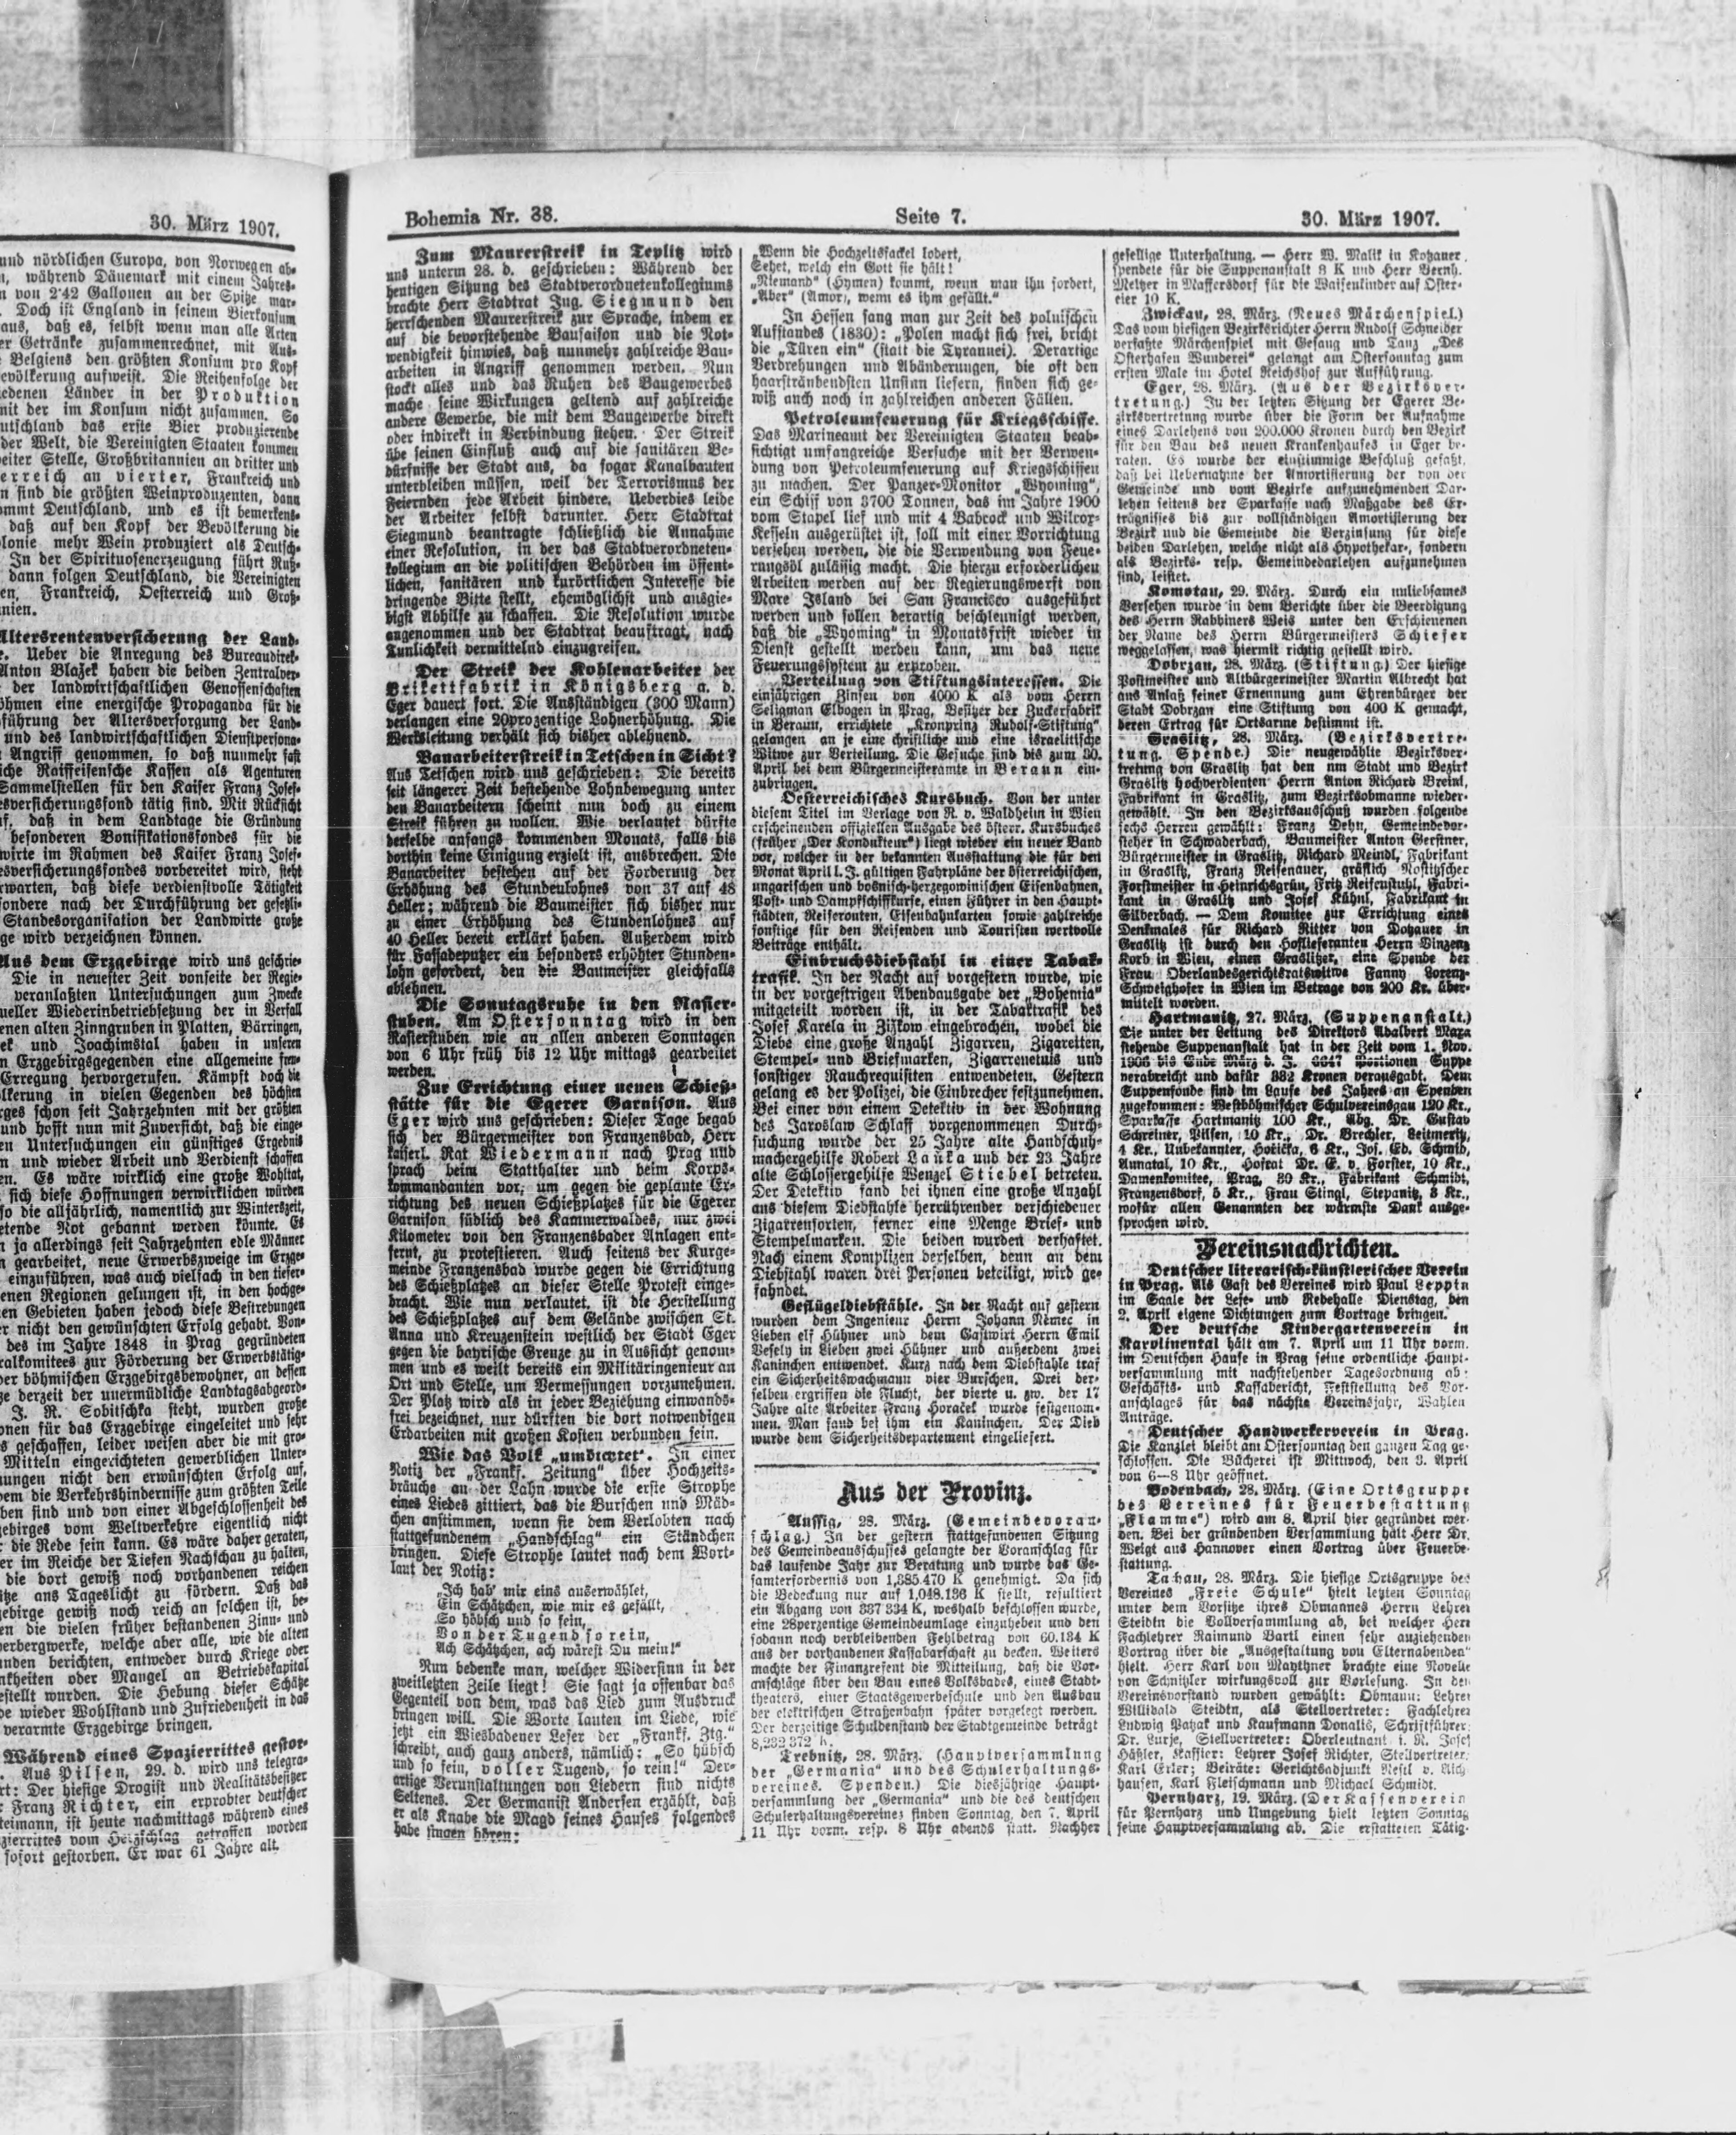 30. März 1907.
und nördlichen Europa, von Norwegen ab-
während Dänemark mit einem Jahres-
von 2·42 Gallonen an der Spitze mar-
Doch ist England in seinem Bierkonsum
aus, daß es, selbst wenn man alle Arten
Getränke zusammenrechnet, mit Aus-
Belgiens den größten Konsum pro Kopf
evölkerung aufweist. Die Reihenfolge der
edenen Länder in der Produktion
mit der im Konsum nicht zusammen. So
utschland das erste Bier produzierende
der Welt, die Vereinigten Staaten kommen
eiter Stelle, Großbritannien an dritter und
erreich an vierter, Frankreich und
n sind die größten Weinproduzenten, dann
ommt Deutschland, und es ist bemerkens-
daß auf den Kopf der Bevölkerung die
lonie mehr Wein produziert als Deutsch-
In der Spirituosenerzeugung führt Ruß-
dann folgen Deutschland, die Vereinigten
en, Frankreich, Oesterreich und Groß-
nien.
Altersrentenversicherung der Land-
Ueber die Anregung des Bureaudirek-
Anton Blažek haben die beiden Zentralver-
der landwirtschaftlichen Genossenschaften
öhmen eine energische Propaganda für die
führung der Altersversorgung der Land-
und des landwirtschaftlichen Dienstpersona-
Angriff genommen, so daß nunmehr fast
iche Raiffeisensche Kassen als Agenturen
Sammelstellen für den Kaiser Franz Josef-
esversicherungsfond tätig sind. Mit Rücksicht
uf, daß in dem Landtage die Gründung
besonderen Bonifikationsfondes für die
wirte im Rahmen des Kaiser Franz Josef-
esversicherungsfondes vorbereitet wird, steht
rwarten, daß diese verdienstvolle Tätigkeit
ondere nach der Durchführung der gesetzli-
Standesorganisation der Landwirte große
ge wird verzeichnen können.
Aus dem Erzgebirge wird uns geschrie-
Die in neuester Zeit vonseite der Regie-
veranlaßten Untersuchungen zum Zwecke
ueller Wiederinbetriebsetzung der in Verfall
enen alten Zinngruben in Platten, Bärringen,
ek und Joachimstal haben in unseren
n Erzgebirgsgegenden eine allgemeine freu-
Erregung hervorgerufen. Kämpft doch die
lkerung in vielen Gegenden des höchsten
rges schon seit Jahrzehnten mit der größten
und hofft nun mit Zuversicht, daß die einge-
en Untersuchungen ein günstiges Ergebnis
n und wieder Arbeit und Verdienst schaffen
en. Es wäre wirklich eine große Wohltat,
sich diese Hoffnungen verwirklichen würden
so die alljährlich, namentlich zur Winterszeit,
etende Not gebannt werden könnte. Es
n ja allerdings seit Jahrzehnten edle Männer
n gearbeitet, neue Erwerbszweige im Erzge-
einzuführen, was auch vielfach in den tiefer-
enen Regionen gelungen ist, in den hochge-
en Gebieten haben jedoch diese Bestrebungen
r nicht den gewünschten Erfolg gehabt. Von-
des im Jahre 1848 in Prag gegründeten
ralkomitees zur Förderung der Erwerbstätig-
der böhmischen Erzgebirgsbewohner, an dessen
ze derzeit der unermüdliche Landtagsabgeord-
J. R. Sobitschka steht, wurden große
onen für das Erzgebirge eingeleitet und sehr
s geschaffen, leider weisen aber die mit gro-
Mitteln eingerichteten gewerblichen Unter-
ungen nicht den erwünschten Erfolg auf,
dem die Verkehrshindernisse zum größten Teile
ben sind und von einer Abgeschlossenheit des
ebirges vom Weltverkehre eigentlich nicht
die Rede sein kann. Es wäre daher geraten,
er im Reiche der Tiefen Nachschau zu halten,
die dort gewiß noch vorhandenen reichen
tze ans Tageslicht zu fördern. Daß das
ebirge gewiß noch reich an solchen ist, be-
en die vielen früher bestandenen Zinn- und
erbergwerke, welche aber alle, wie die alten
nden berichten, entweder durch Kriege oder
nkheiten oder Mangel an Betriebskapital
estellt wurden. Die Hebung dieser Schätze
de wieder Wohlstand und Zufriedenheit in das
verarmte Erzgebirge bringen.
Während eines Spazierrittes gestor-
Aus Pilsen, 29. d. wird uns telegra-
rt: Der hiesige Drogist und Realitätsbesitzer
Franz Richter, ein erprobter deutscher
teimann, ist heute nachmittags während eines
zierrittes vom Herzschlag getroffen worden
sofort gestorben. Er war 61 Jahre alt.
Bohemia Nr. 38. Seite 7. 30. März 1907.
Zum Maurerstreik in Teplitz wird
uns unterm 28. d. geschrieben: Während der
heutigen Sitzung des Stadtverordnetenkollegiums
brachte Herr Stadtrat Ing. Siegmund den
herrschenden Maurerstreik zur Sprache, indem er
auf die bevorstehende Bausaison und die Not-
wendigkeit hinwies, daß nunmehr zahlreiche Bau-
arbeiten in Angriff genommen werden. Nun
stockt alles und das Ruhen des Baugewerbes
mache seine Wirkungen geltend auf zahlreiche
andere Gewerbe, die mit dem Baugewerbe direkt
oder indirekt in Verbindung stehen. Der Streik
übe seinen Einfluß auch auf die sanitären Be-
dürfnisse der Stadt aus, da sogar Kanalbauten
unterbleiben müssen, weil der Terrorismus der
Feiernden jede Arbeit hindere. Ueberdies leide
der Arbeiter selbst darunter. Herr Stadtrat
Siegmund beantragte schließlich die Annahme
einer Resolution, in der das Stadtverordneten-
kollegium an die politischen Behörden im öffent-
lichen, sanitären und kurörtlichen Interesse die
dringende Bitte stellt, ehemöglichst und ausgie-
bigst Abhilfe zu schaffen. Die Resolution wurde
angenommen und der Stadtrat beauftragt, nach
Tunlichkeit vermittelnd einzugreifen.
Der Streik der Kohlenarbeiter der
Brikettfabrik in Königsberg a. d.
Eger dauert fort. Die Ausständigen (300 Mann)
verlangen eine 20prozentige Lohnerhöhung. Die
Werksleitung verhält sich bisher ablehnend.
Bauarbeiterstreik in Tetschen in Sicht?
Aus Tetschen wird uns geschrieben: Die bereits
seit längerer Zeit bestehende Lohnbewegung unter
den Bauarbeitern scheint nun doch zu einem
Streik führen zu wollen. Wie verlautet dürfte
derselbe anfangs kommenden Monats, falls bis
dorthin keine Einigung erzielt ist, ausbrechen. Die
Bauarbeiter bestehen auf der Forderung der
Erhöhung des Stundenlohnes von 37 auf 48
Heller; während die Baumeister sich bisher nur
zu einer Erhöhung des Stundenlohnes auf
40 Heller bereit erklärt haben. Außerdem wird
für Fassadeputzer ein besonders erhöhter Stunden-
lohn gefordert, den die Baumeister gleichfalls
ablehnen.
Die Sonntagsruhe in den Rasier-
stuben. Am Ostersonntag wird in den
Rasierstuben wie an allen anderen Sonntagen
von 6 Uhr früh bis 12 Uhr mittags gearbeitet
werden.
Zur Errichtung einer neuen Schieß-
stätte für die Egerer Garnison. Aus
Eger wird uns geschrieben: Dieser Tage begab
sich der Bürgermeister von Franzensbad, Herr
kaiserl. Rat Wiedermann nach Prag und
sprach beim Statthalter und beim Korps-
kommandanten vor, um gegen die geplante Er-
richtung des neuen Schießplatzes für die Egerer
Garnison südlich des Kammerwaldes, nur zwei
Kilometer von den Franzensbader Anlagen ent-
fernt, zu protestieren. Auch seitens der Kurge-
meinde Franzensbad wurde gegen die Errichtung
des Schießplatzes an dieser Stelle Protest einge-
bracht. Wie nun verlautet, ist die Herstellung
des Schießplatzes auf dem Gelände zwischen St.
Anna und Kreuzenstein westlich der Stadt Eger
gegen die bayrische Grenze zu in Aussicht genom-
men und es weilt bereits ein Militäringenieur an
Ort und Stelle, um Vermessungen vorzunehmen.
Der Platz wird als in jeder Beziehung einwands-
frei bezeichnet, nur dürften die dort notwendigen
Erdarbeiten mit großen Kosten verbunden sein.
Wie das Volk „umdichtet“. In einer
Notiz der „Frankf. Zeitung“ über Hochzeits-
bräuche an der Lahn wurde die erste Strophe
eines Liedes zittiert, das die Burschen und Mäd-
chen anstimmen, wenn sie dem Verlobten nach
stattgefundenem „Handschlag“ ein Ständchen
bringen. Diese Strophe lautet nach dem Wort-
laut der Notiz:
„Ich hab' mir eins auserwählet,
Ein Schätzchen, wie mir es gefällt,
So höbsch und so fein,
Von der Tugend so rein,
Ach Schätzchen, ach wärest Du mein!“
Nun bedenke man, welcher Widersinn in der
zweitletzten Zeile liegt! Sie sagt ja offenbar das
Gegenteil von dem, was das Lied zum Ausdruck
bringen will. Die Worte lauten im Liede, wie
jetzt ein Wiesbadener Leser der „Frankf. Ztg.“
schreibt, auch ganz anders, nämlich: „So hübsch
und so fein, voller Tugend, so rein!“ Der-
artige Verunstaltungen von Liedern sind nichts
Seltenes. Der Germanist Andersen erzählt, daß
er als Knabe die Magd seines Hauses folgendes
habe singen hören:
„Wenn die Hochzeitsfackel lodert,
Sehet, welch ein Gott sie hält!
„Niemand“ (Hymen) kommt, wenn man ihn fordert,
„Aber“ (Amor), wenn es ihm gefällt.“
In Hessen sang man zur Zeit des polnischen
Aufstandes (1830): „Polen macht sich frei, bricht
die „Türen ein“ (statt die Tyrannei). Derartige
Verdrehungen und Abänderungen, die oft den
haarsträubendsten Unsinn liefern, finden sich ge-
wiß auch noch in zahlreichen anderen Fällen.
Petroleumfeuerung für Kriegsschiffe.
Das Marineamt der Vereinigten Staaten beab-
sichtigt umfangreiche Versuche mit der Verwen-
dung von Petroleumfeuerung auf Kriegsschiffen
zu machen. Der Panzer-Monitor „Wyoming“,
ein Schiff von 3700 Tonnen, das im Jahre 1900
vom Stapel lief und mit 4 Babcock und Wilcox-
Kesseln ausgerüstet ist, soll mit einer Vorrichtung
versehen werden, die die Verwendung von Feue-
rungsöl zulässig macht. Die hierzu erforderlichen
Arbeiten werden auf der Regierungswerft von
Mare Island bei San Francisco ausgeführt
werden und sollen derartig beschleunigt werden,
daß die „Wyoming“ in Monatsfrist wieder in
Dienst gestellt werden kann, um das neue
Feuerungssystem zu erproben.
Verteilung von Stiftungsinteressen. Die
einjährigen Zinsen von 4000 K als vom Herrn
Seligman Elbogen in Prag, Besitzer der Zuckerfabrik
in Beraun, errichtete „Kronprinz Rudolf-Stiftung“
gelangen an je eine christliche und eine israelitische
Witwe zur Verteilung. Die Gesuche sind bis zum 30.
April bei dem Bürgermeisteramte in Beraun ein-
zubringen.
Oesterreichisches Kursbuch. Von der unter
diesem Titel im Verlage von R. v. Waldheim in Wien
erscheinenden offiziellen Ausgabe des österr. Kursbuches
(früher „Der Kondukteur“) liegt wieder ein neuer Band
vor, welcher in der bekannten Ausstattung die für den
Monat April l. J. gültigen Fahrpläne der österreichischen,
ungarischen und bosnisch-herzegowinischen Eisenbahnen,
Post- und Dampfschiffkurse, einen Führer in den Haupt-
städten, Reiserouten, Eisenbahnkarten sowie zahlreiche
sonstige für den Reisenden und Touristen wertvolle
Beiträge enthält.
Einbruchsdiebstahl in einer Tabak-
trafik. In der Nacht auf vorgestern wurde, wie
in der vorgestrigen Abendausgabe der „Bohemia“
mitgeteilt worden ist, in der Tabaktrafik des
Josef Karela in Žižkow eingebrochen, wobei die
Diebe eine große Anzahl Zigarren, Zigaretten,
Stempel- und Briefmarken, Zigarrenetuis und
sonstiger Rauchrequisiten entwendeten. Gestern
gelang es der Polizei, die Einbrecher festzunehmen.
Bei einer von einem Detektiv in der Wohnung
des Jaroslaw Schlaff vorgenommenen Durch-
suchung wurde der 25 Jahre alte Handschuh-
machergehilfe Robert Lauka und der 23 Jahre
alte Schlossergehilfe Wenzel Stiebel betreten.
Der Detektiv fand bei ihnen eine große Anzahl
aus diesem Diebstahle herrührender verschiedener
Zigarrensorten, ferner eine Menge Brief- und
Stempelmarken. Die beiden wurden verhaftet.
Nach einem Komplizen derselben, denn an dem
Diebstahl waren drei Personen beteiligt, wird ge-
fahndet.
Geflügeldiebstähle. In der Nacht auf gestern
wurden dem Ingenieur Herrn Johann Němec in
Lieben elf Hühner und dem Gastwirt Herrn Emil
Vesely in Lieben zwei Hühner und außerdem zwei
Kaninchen entwendet. Kurz nach dem Diebstahle traf
ein Sicherheitswachmann vier Burschen. Drei der-
selben ergriffen die Flucht, der vierte u. zw. der 17
Jahre alte Arbeiter Franz Horaček wurde festgenom-
men. Man fand bei ihm ein Kaninchen. Der Dieb
wurde dem Sicherheitsdepartement eingeliefert.
Aus der Provinz.
Aussig, 28. März. (Gemeindevoran-
schlag.) In der gestern stattgefundenen Sitzung
des Gemeindeausschusses gelangte der Voranschlag für
das laufende Jahr zur Beratung und wurde das Ge-
samterfordernis von 1,385.470 K genehmigt. Da sich
die Bedeckung nur auf 1,048.136 K stellt, resultiert
ein Abgang von 337 334 K, weshalb beschlossen wurde,
eine 28perzentige Gemeindeumlage einzuheben und den
sodann noch verbleibenden Fehlbetrag von 60.134 K
aus der vorhandenen Kassabarschaft zu decken. Weiters
machte der Finanzreferent die Mitteilung, daß die Vor-
anschläge über den Bau eines Volksbades, eines Stadt-
theaters, einer Staatsgewerbeschule und den Ausbau
der elektrischen Straßenbahn später vorgelegt werden.
Der derzeitige Schuldenstand der Stadtgemeinde beträgt
8,232 372 K.
Trebnitz, 28. März. (Hauptversammlung
der „Germania“ und des Schulerhaltungs-
vereines. Spenden.) Die diesjährige Haupt-
versammlung der „Germania“ und die des deutschen
Schulerhaltungsvereines finden Sonntag, den 7. April
11 Uhr vorm. resp. 8 Uhr abends statt. Nachher
gesellige Unterhaltung. — Herr W. Malik in Kozauer
spendete für die Suppenanstalt 8 K und Herr Bernh.
Meltzer in Maffersdorf für die Waisenkinder auf Oster-
eier 10 K.
Zwickau, 28. März. (Neues Märchenspiel.)
Das vom hiesigen Bezirksrichter Herrn Rudolf Schneider
verfaßte Märchenspiel mit Gesang und Tanz „Des
Osterhasen Wunderei“ gelangt am Ostersonntag zum
ersten Male im Hotel Reichshof zur Aufführung.
Eger, 28. März. (Aus der Bezirksver-
tretung.) In der letzten Sitzung der Egerer Be-
zirksvertretung wurde über die Form der Aufnahme
eines Darlehens von 200.000 Kronen durch den Bezirk
für den Bau des neuen Krankenhauses in Eger be-
raten. Es wurde der einstimmige Beschluß gefaßt,
daß bei Uebernahme der Amortisierung der von der
Gemeinde und vom Bezirke aufzunehmenden Dar-
lehen seitens der Sparkasse nach Maßgabe des Er-
trägnisses bis zur vollständigen Amortisierung der
Bezirk und die Gemeinde die Verzinsung für diese
beiden Darlehen, welche nicht als Hypothekar-, sondern
als Bezirks- resp. Gemeindedarlehen aufzunehmen
sind, leistet.
Komotau, 29. März. Durch ein unliebsames
Versehen wurde in dem Berichte über die Beerdigung
des Herrn Rabbiners Weis unter den Erschienenen
der Name des Herrn Bürgermeisters Schiefer
weggelassen, was hiermit richtig gestellt wird.
Dobrzan, 28. März. (Stiftung.) Der hiesige
Postmeister und Altbürgermeister Martin Albrecht hat
aus Anlaß seiner Ernennung zum Ehrenbürger der
Stadt Dobrzan eine Stiftung von 400 K gemacht,
deren Ertrag für Ortsarme bestimmt ist.
Graslitz, 28. März. (Bezirksvertre-
tung. Spende.) Die neugewählte Bezirksver-
tretung von Graslitz hat den um Stadt und Bezirk
Graslitz hochverdienten Herrn Anton Richard Breinl,
Fabrikant in Graslitz, zum Bezirksobmanne wieder-
gewählt. In den Bezirksausschuß wurden folgende
sechs Herren gewählt: Franz Dehn, Gemeindevor-
steher in Schwaderbach, Baumeister Anton Gerstner,
Bürgermeister in Graslitz, Richard Meindl, Fabrikant
in Graslitz, Franz Reisenauer, gräflich Nostitzscher
Forstmeister in Heinrichsgrün, Fritz Reifenstuhl, Fabri-
kant in Graslitz und Josef Kühnl, Fabrikant in
Silberbach. — Dem Komitee zur Errichtung eines
Denkmales für Richard Ritter von Dotzauer in
Graslitz ist durch den Hoflieferanten Herrn Vinzenz
Korb in Wien, einen Graslitzer, eine Spende der
Frau Oberlandesgerichtsratswitwe Fanny Lorenz-
Schweighofer in Wien im Betrage von 200 Kr. über-
mittelt worden.
Hartmanitz, 27. März. (Suppenanstalt.)
Die unter der Leitung des Direktors Adalbert Maza
stehende Suppenanstalt hat in der Zeit vom 1. Nov.
1906 bis Ende März d. J. 6647 Portionen Suppe
verabreicht und dafür 382 Kronen verausgabt. Dem
Suppenfonde sind im Laufe des Jahres an Spenden
zugekommen: Westböhmischer Schulvereinsgau 120 Kr.,
Sparkasse Hartmanitz 100 Kr., Abg. Dr. Gustav
Schreiner, Pilsen, 10 Kr., Dr. Brechler, Leitmeritz,
4 Kr., Unbekannter, Hořička, 6 Kr., Jos. Ed. Schmid,
Annatal, 10 Kr., Hofrat Dr. E. v. Forster, 10 Kr.,
Damenkomitee, Prag, 30 Kr., Fabrikant Schmidt,
Franzensdorf, 5 Kr., Frau Stingl, Stepanitz, 3 Kr.,
wofür allen Genannten der wärmste Dank ausge-
sprochen wird.
Vereinsnachrichten.
Deutscher literarisch-künstlerischer Verein
in Prag. Als Gast des Vereines wird Paul Leppin
im Saale der Lese- und Redehalle Dienstag, den
2. April eigene Dichtungen zum Vortrage bringen.
Der deutsche Kindergartenverein in
Karolinental hält am 7. April um 11 Uhr vorm.
im Deutschen Hause in Prag seine ordentliche Haupt-
versammlung mit nachstehender Tagesordnung ab:
Geschäfts- und Kassabericht, Feststellung des Vor-
anschlages für das nächste Vereinsjahr, Wahlen
Anträge.
Deutscher Handwerkerverein in Prag.
Die Kanzlei bleibt am Ostersonntag den ganzen Tag ge-
schlossen. Die Bücherei ist Mittwoch, den 3. April
von 6—8 Uhr geöffnet.
Bodenbach, 28. März. (Eine Ortsgruppe
des Vereines für Feuerbestattung
„Flamme“) wird am 8. April hier gegründet wer-
den. Bei der gründenden Versammlung hält Herr Dr.
Weigt aus Hannover einen Vortrag über Feuerbe-
stattung.
Tachau, 28. März. Die hiesige Ortsgruppe des
Vereines „Freie Schule“ hielt letzten Sonntag
unter dem Vorsitze ihres Obmannes Herrn Lehrer
Steidtn die Vollversammlung ab, bei welcher Herr
Fachlehrer Raimund Bartl einen sehr anziehenden
Vortrag über die „Ausgestaltung von Elternabenden“
hielt. Herr Karl von Maythner brachte eine Novelle
von Schnitzler wirkungsvoll zur Vorlesung. In den
Vereinsvorstand wurden gewählt: Obmann: Lehrer
Willibald Steidtn, als Stellvertreter: Fachlehrer
Ludwig Patzak und Kaufmann Donalis, Schriftführer:
Dr. Lurje, Stellvertreter: Oberleutnant i. R. Josef
Häßler, Kassier: Lehrer Josef Richter, Stellvertreter:
Karl Erler; Beiräte: Gerichtsadjunkt Restl v. Aich
hausen, Karl Fleischmann und Michael Schmidt.
Pernharz, 19. März. (Der Kassenverein
für Pernharz und Umgebung hielt letzten Sonntag
seine Hauptversammlung ab. Die erstatteten Tätig-